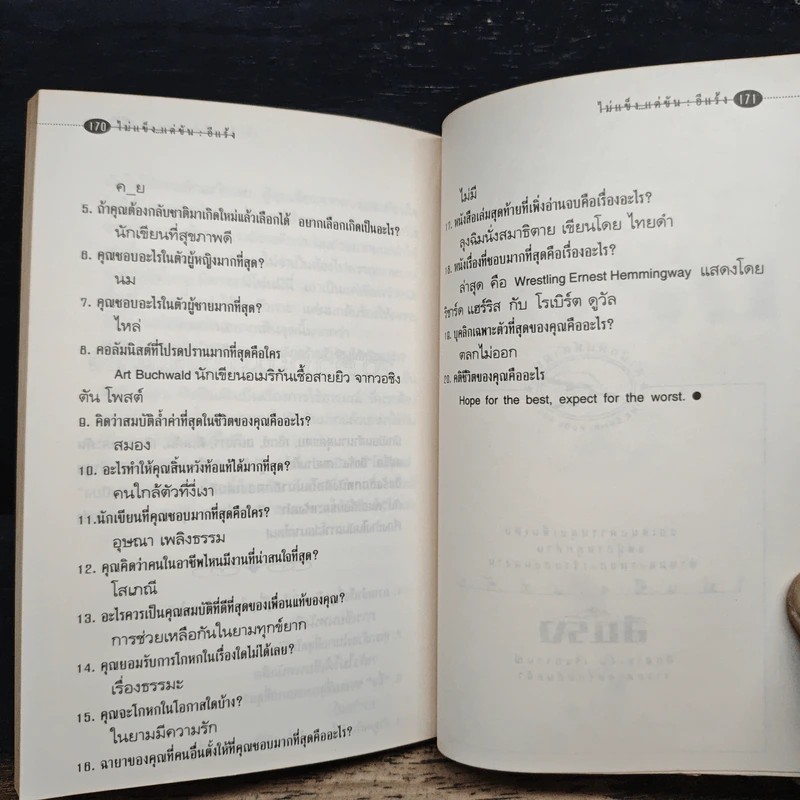 170 ไม่แข็ง แต่ขัน : อีแร้ง
ค_ย
5. ถ้าคุณต้องกลับชาติมาเกิดใหม่แล้วเลือกได้ อยากเลือกเกิดเป็นอะไร?
นักเขียนที่สุขภาพดี
6. คุณชอบอะไรในตัวผู้หญิงมากที่สุด?
นม
7. คุณชอบอะไรในตัวผู้ชายมากที่สุด?
ไหล่
8. คอลัมนิสต์ที่โปรดปรานมากที่สุดคือใคร
Art Buchwald นักเขียนอเมริกันเชื้อสายยิว จากวอชิง
ตัน โพสต์
๑. คิดว่าสมบัติล้ำค่าที่สุดในชีวิตของคุณคืออะไร?
สมอง
10. อะไรทำให้คุณสิ้นหวังท้อแท้ได้มากที่สุด?
คนใกล้ตัวที่งี่เงา
11.นักเขียนที่คุณชอบมากที่สุดคือใคร?
อุษณา เพลิงธรรม
12. คุณคิดว่าคนในอาชีพไหนมีงานที่น่าสนใจที่สุด?
โสเภณี
13. อะไรควรเป็นคุณสมบัติที่ดีที่สุดของเพื่อนแท้ของคุณ?
การช่วยเหลือกันในยามทุกข์ยาก
14. คุณยอมรับการโกหกในเรื่องใดไม่ได้เลย?
เรื่องธรรมะ
15. คุณจะโกหกในโอกาสใดบ้าง?
ในยามมีความรัก
16. ฉายาของคุณที่คนอื่นตั้งให้ที่คุณชอบมากที่สุดคืออะไร?
ไม่แข็ง แต่ขัน : อีแร้ง 171
ไม่มี
17. หนังสือเล่มสุดท้ายที่เพิ่งอ่านจบคือเรื่องอะไร?
ลุงฉิมนั่งสมาธิตาย เขียนโดย ไทยดำ
18. หนังเรื่องที่ชอบมากที่สุดคือเรื่องอะไร?
ล่าสุด คือ Wrestling Ernest Hemmingway แสดงโดย
ริชาร์ด แฮร์ริส กับ โรเบิร์ต ดูวัล
19. บุคลิกเฉพาะตัวที่สุดของคุณคืออะไร?
ตลกไม่ออก
20. คติชีวิตของคุณคืออะไร
Hope for the best, expect for the worst. ●